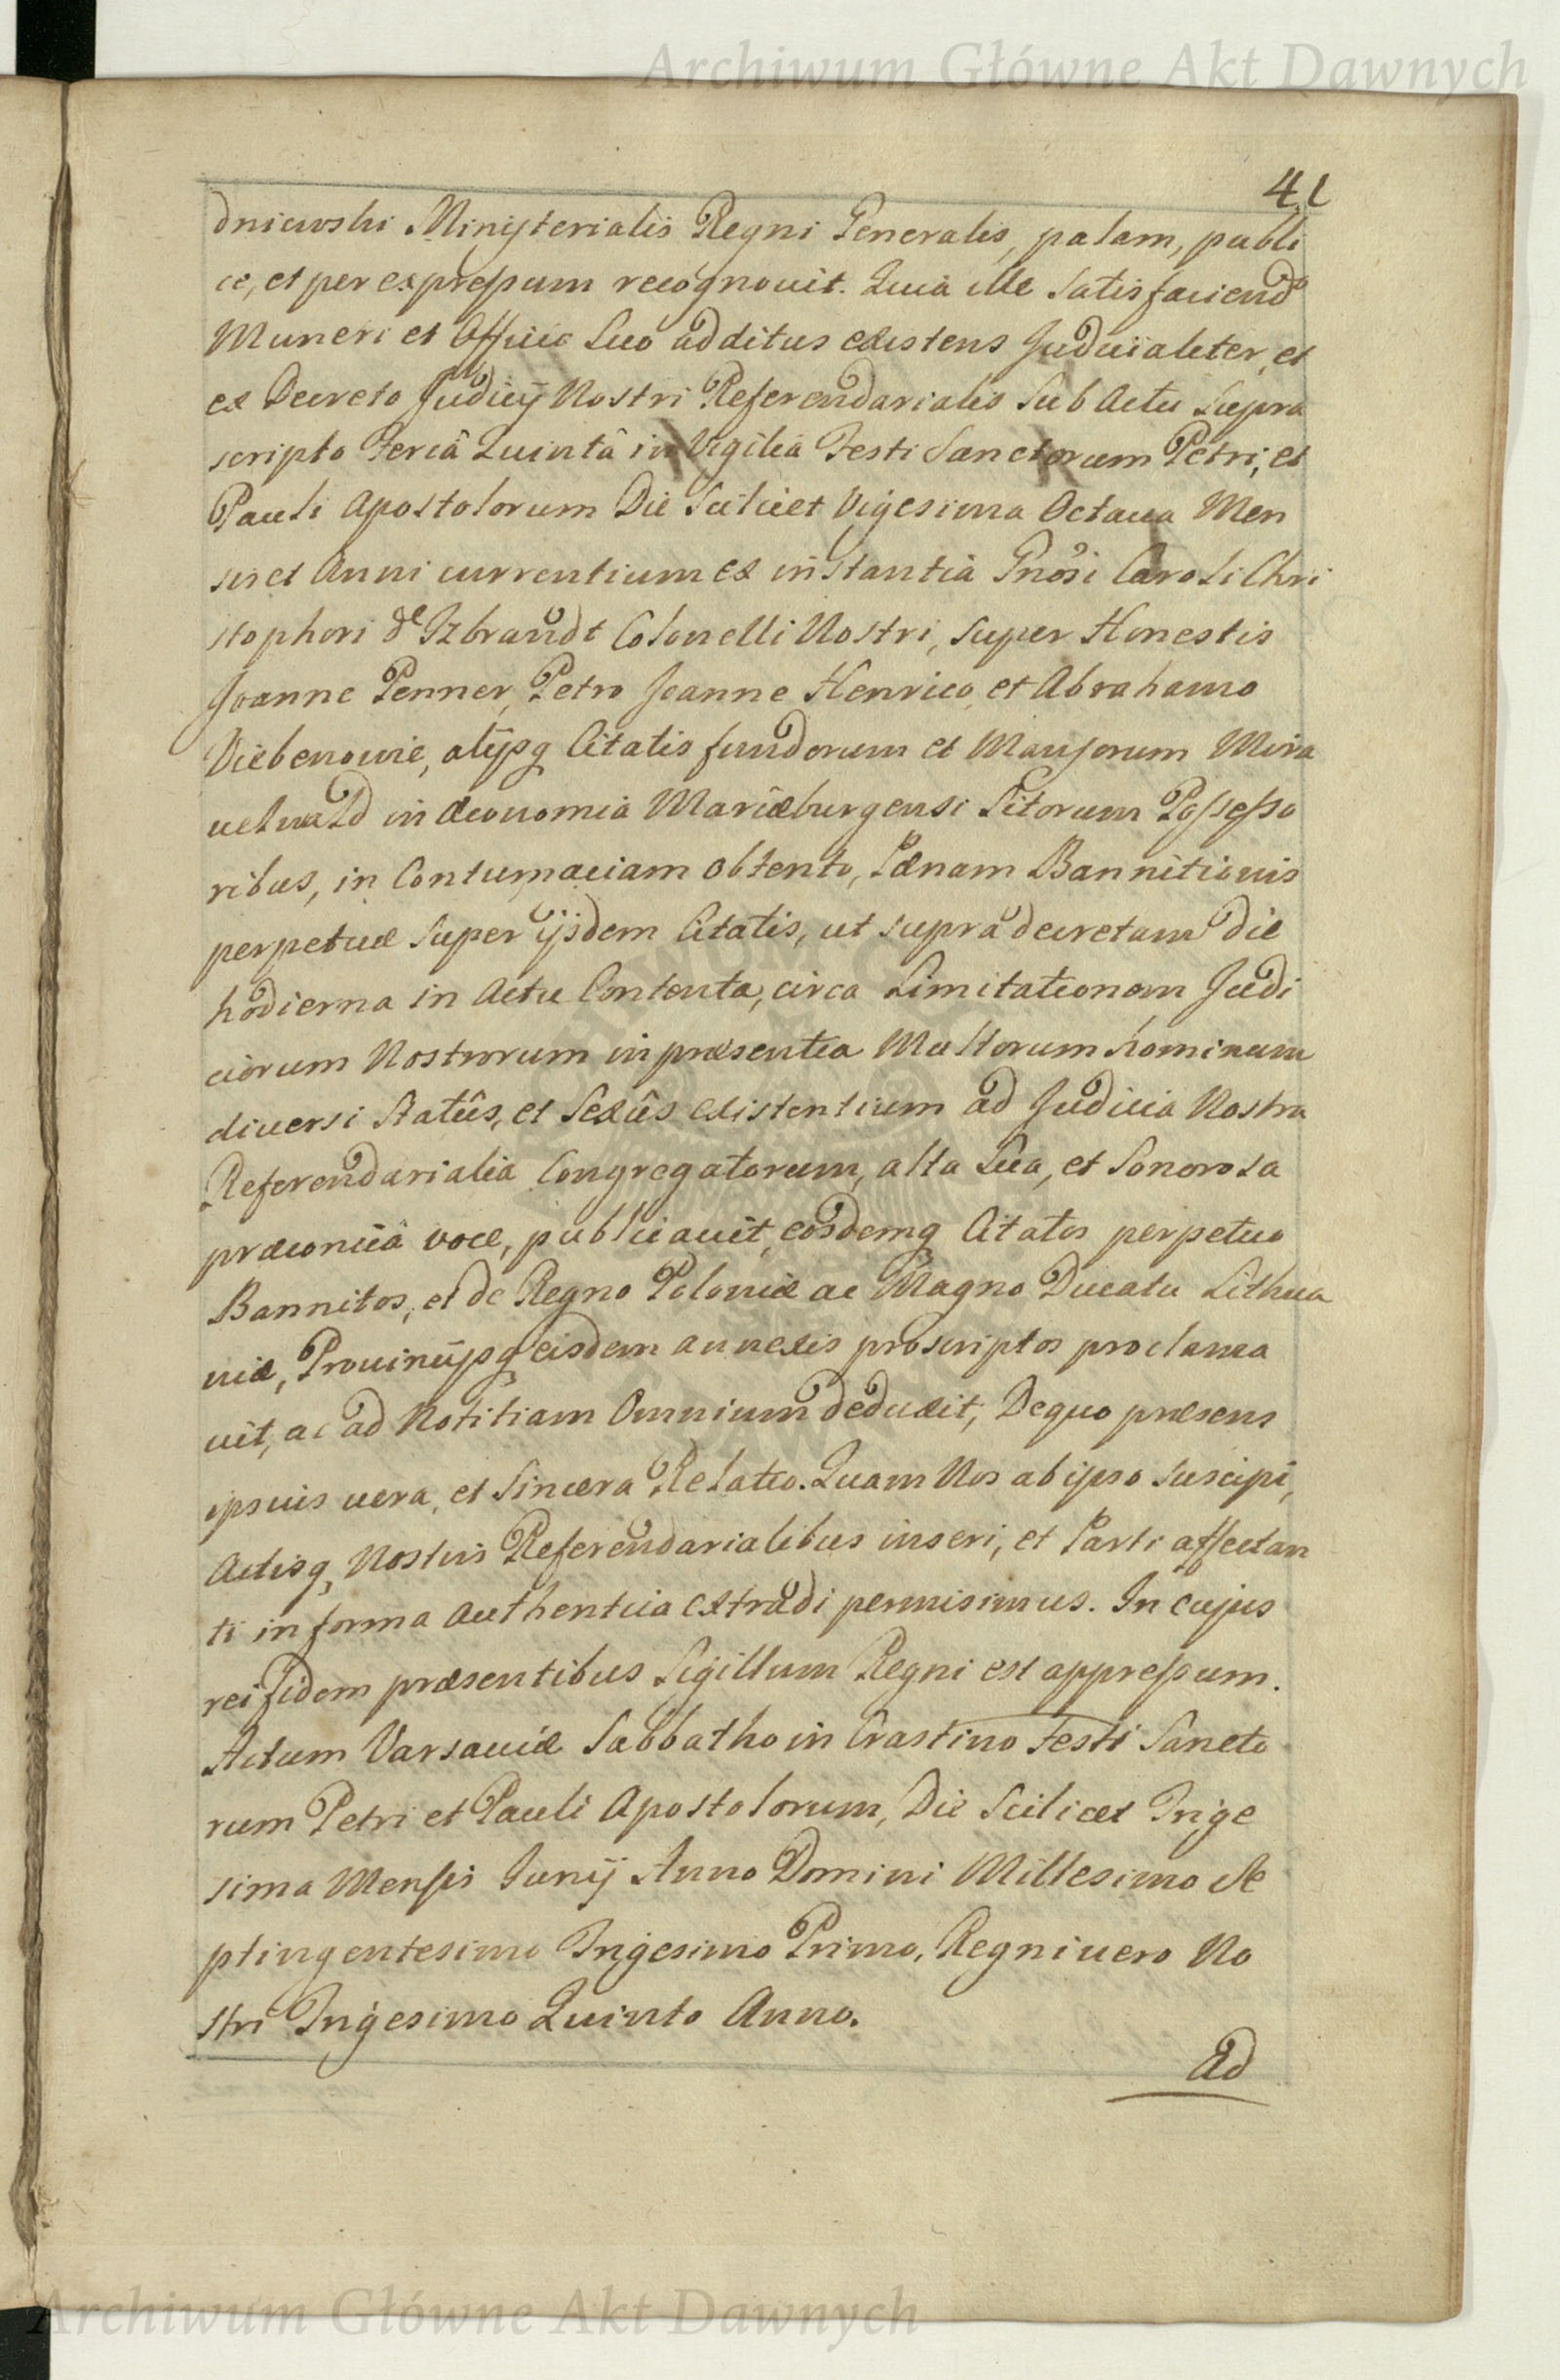 Archiwum Główne Akt Dawnych
41
dniewski Ministerialis Regni Generalis, palam, publi
ce, et per expressum recognovit. Quia ille Satisfaciendo
Muneri et Officio Suo additus existens Judicialiter, et
ex Decreto Judicij Nostri Referendarialis Sub Actu Supra
scripto Feriâ Quintâ in Vigilia Festi Sanctorum Petri, et
Pauli Apostolorum Die Scilicet Vigesima Octava Men
sis et Anni currentium ex instantia Gnosi Caroli Chri
stophori de Izbrandt Colonelli Nostri, Super Honestis
Joanne Penner, Petro Joanne Henrico, et Abrahamo
Viebenowie, alijsq Citatis fundorum et Mansorum Mira
uelwald in Œconomia Mariæburgensi Sitorum Possesso
ribus, in Contumaciam obtento, Pænam Bannitionis
perpetuæ Super ijsdem Citatis, ut supra decretam die
hodierna in Actu Contenta, circa Limitationem Judi
ciorum Nostrorum in præsentia Multorum hominum
diversi Statûs, et Sexûs existentium ad Judicia Nostra
Referendarialia Congregatorum, alta Sua, et Sonorosa
præconicâ voce, publicavit, eosdemq Citatos perpetuo
Bannitos, et de Regno Poloniæ ac Magno Ducatu Lithua
niæ, Provincijsq eisdem annexis proscriptos proclama
vit, ac ad Notitiam Omnium deduxit, De quo præsens
ipsius vera, et Sincera Relatio. Quam Nos ab ipso Suscipi,
Actisq, Nostris Referendarialibus inseri, et Parti affectan
ti in forma Authentica extradi permisimus. In cujus
rei fidem præsentibus Sigillum Regni est appressum.
Actum Varsaviæ Sabbatho in Crastino Festi Sancto
rum Petri et Pauli Apostolorum, Die Scilicet Trige
sima Mensis Junij Anno Domini Millesimo Se
ptingentesimo Trigesimo Primo, Regni vero No
stri Trigesimo Quinto Anno.
Ad
Archiwum Główne Akt Dawnych